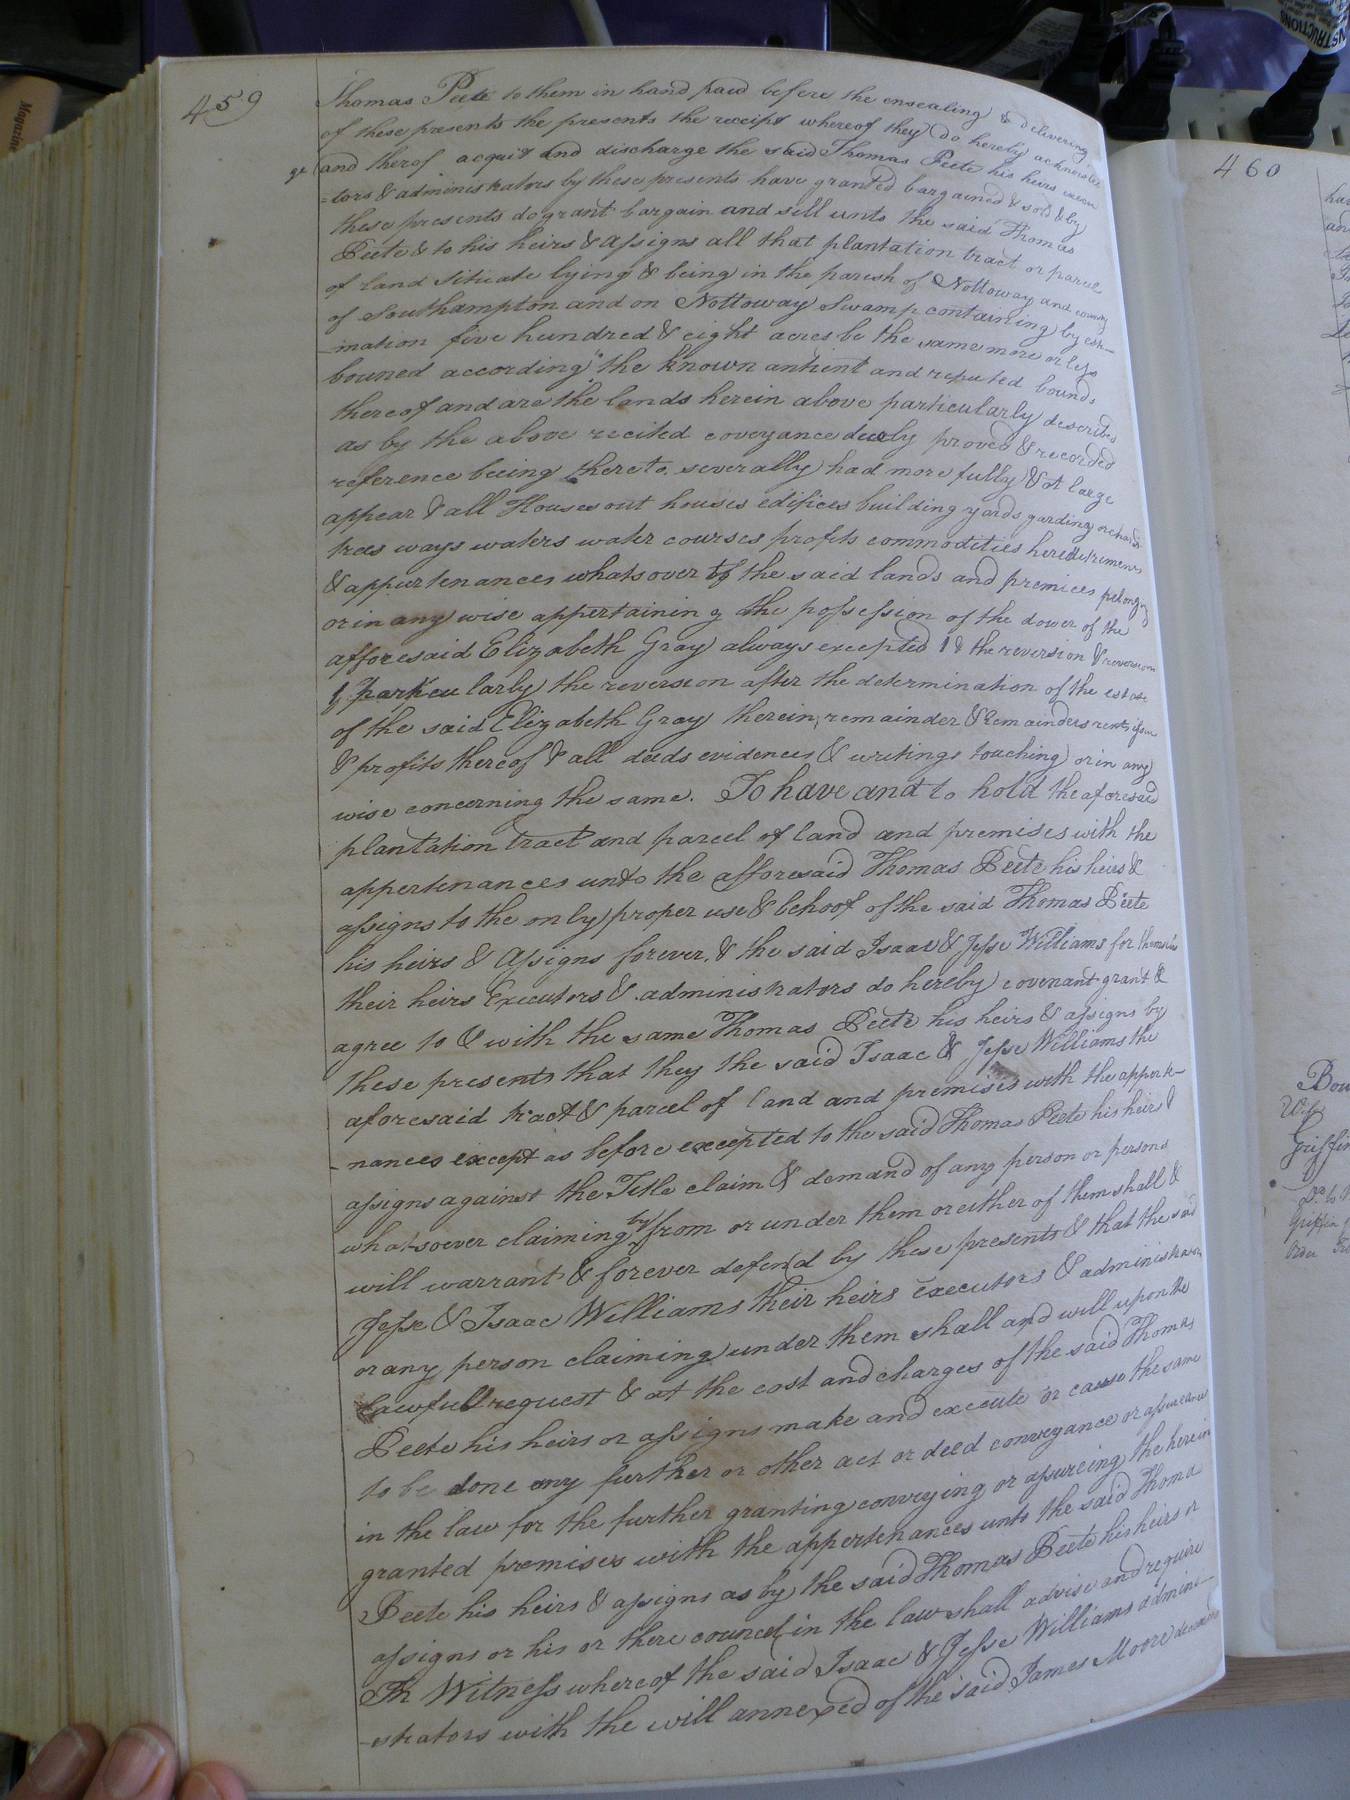 459
Thomas Peete to them in hand paid before the ensealing & delivering
of these presents the presents the receipt whereof they do hereby acknowled
ge and therof acquit and discharge the said Thomas Peete his heirs execu
=tors & administrators by these presents have granted bargained & sold & by
these presents do grant bargain and sell unto the said Thomas
Peete & to his heirs & assigns all that plantation tract or parcel
of land situate lying & being in the parish of Nottoway and county
of Southampton and on Nottoway Swamp containing by esti-
-mation five hundred & eight acres be the same more or less
bouned according the known antient and reputed bounds
thereof and are the lands herein above particularly describes
as by the above recited coveyance duely proved & recorded
reference being thereto severally had more fully & at large
appear & all Houses out houses edifices building yards garding orchards
trees ways waters water courses profits commodities heredetrements
& appurtenances whatsover to the said lands and premices pelonging
or in any wise appertaining the possession of the dower of the
afforesaid Elizabeth Gray always excepted & the reversion & reversions
& partecularly the reversion after the determination of the estate
of the said Elizabeth Gray therein, remainder & Remainders rents issues
& profits thereof & all deeds evidences & writings touching or in any
wise concerning the same. To have and to hold the aforesaid
plantation tract and parcel of land and premises with the
appertenances unto the afforesaid Thomas Peete his heirs &
assigns to the only proper use & behoof of the said Thomas Peete
his heirs & Assigns forever, & the said Isaac & Jesse Williams for themselves
their heirs Executors & administrators do hereby covenant grant &
agree to & with the same Thomas Peete his heirs & assigns by
these presents that they the said Isaac & Jesse Williams the
aforesaid tract & parcel of land and premises with the apperte-
-nances except as before excepted to the said Thomas Peete his heirs &
assigns against the Title claim & demand of any person or persons
whatsoever claiming by from or under them or either of them shall &
will warrant & forever defend by these presents & that the said
Jesse & Isaac Williams their heirs executors & administrators
or any person claiming under them shall and will upon the
Lawfull request & at the cost and charges of the said Thomas
Peete his heirs or assigns make and execute or cause the same
to be done any further or other act or deed conveyance or assureance
in the law for the further granting conveying or assureing the herein
granted premises with the appertenances unto the said Thoma
Peete his heirs & assigns as by the said Thomas Peete his heirs or
assigns or his or there council in the law shall advise and require
In Witness whereof the said Isaac & Jesse Williams admini-
-strators with the will annexed of the said James Moore deceased
460
Bou
Wife
Griffin
Griffin
Order
Magazine
INSTRUCTIONS